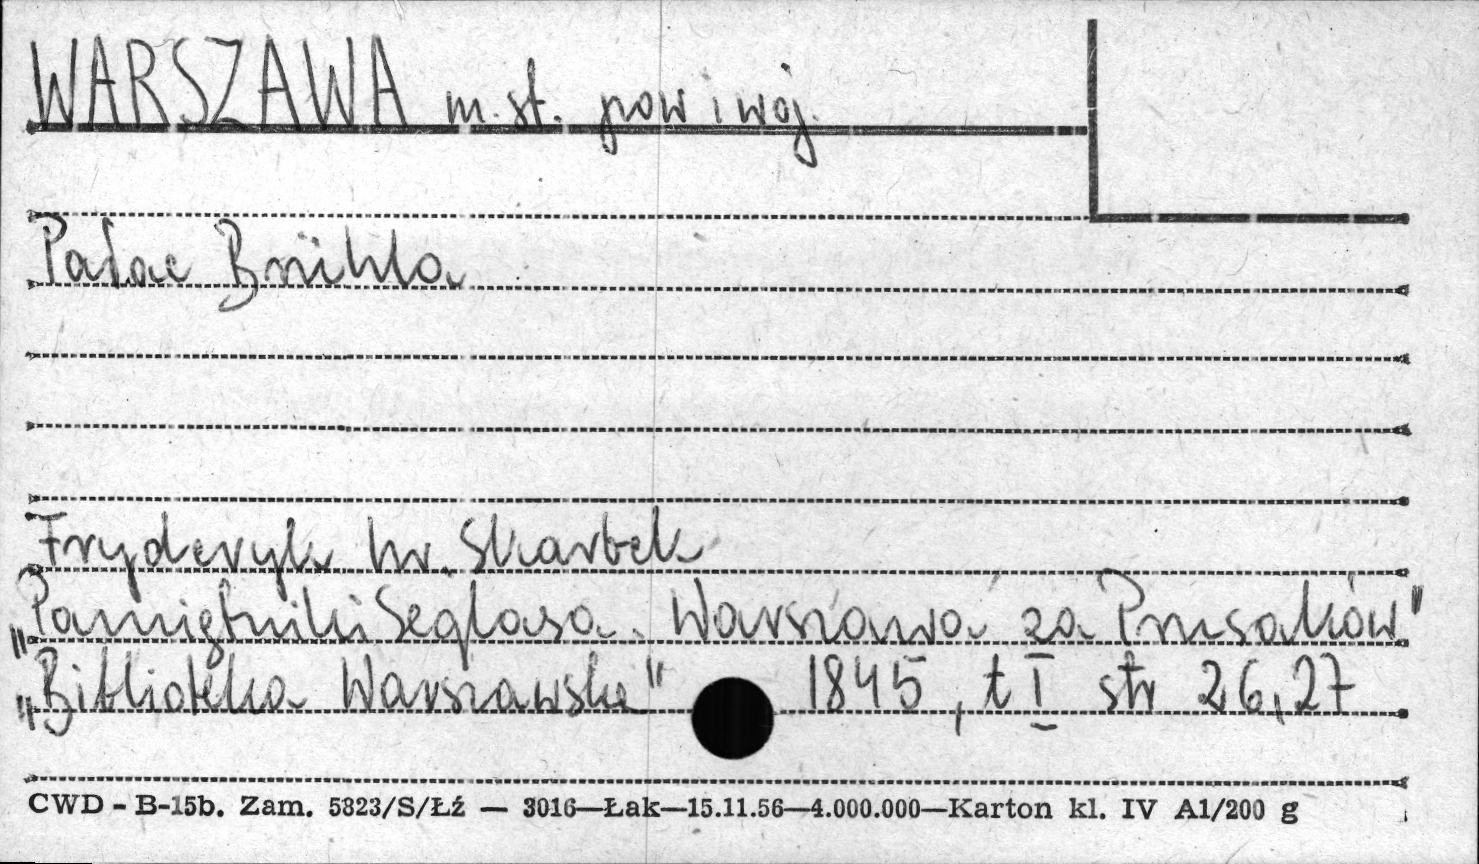 WARSZAWA m. st. pow i woj.
Pałac Brühla
Fryderyk hr. Skarbek
„Pamiętniki Seglasa. Warszawa za Prusaków"
„Biblioteka Warszawska" 1845, t I str 26,27
CWD - B-15b. Zam. 5823/S/Łź — 3016—Łak—15.11.56—4.000.000—Karton kl. IV A1/200 g